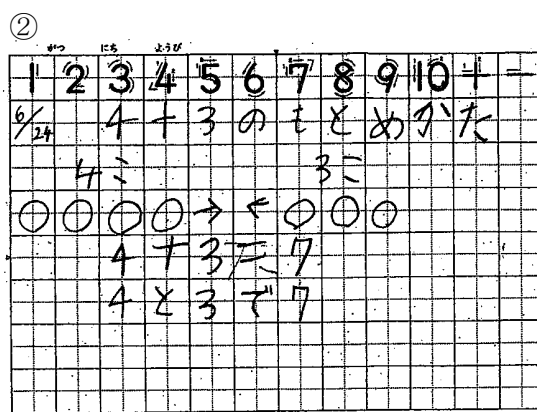 ②
がつ にち ようび
1 2 3 4 5 6 7 8 9 10 + −
6/24 4+3のもとめかた
4こ 3こ
○○○○→←○○○
4+3=7
4と3で7